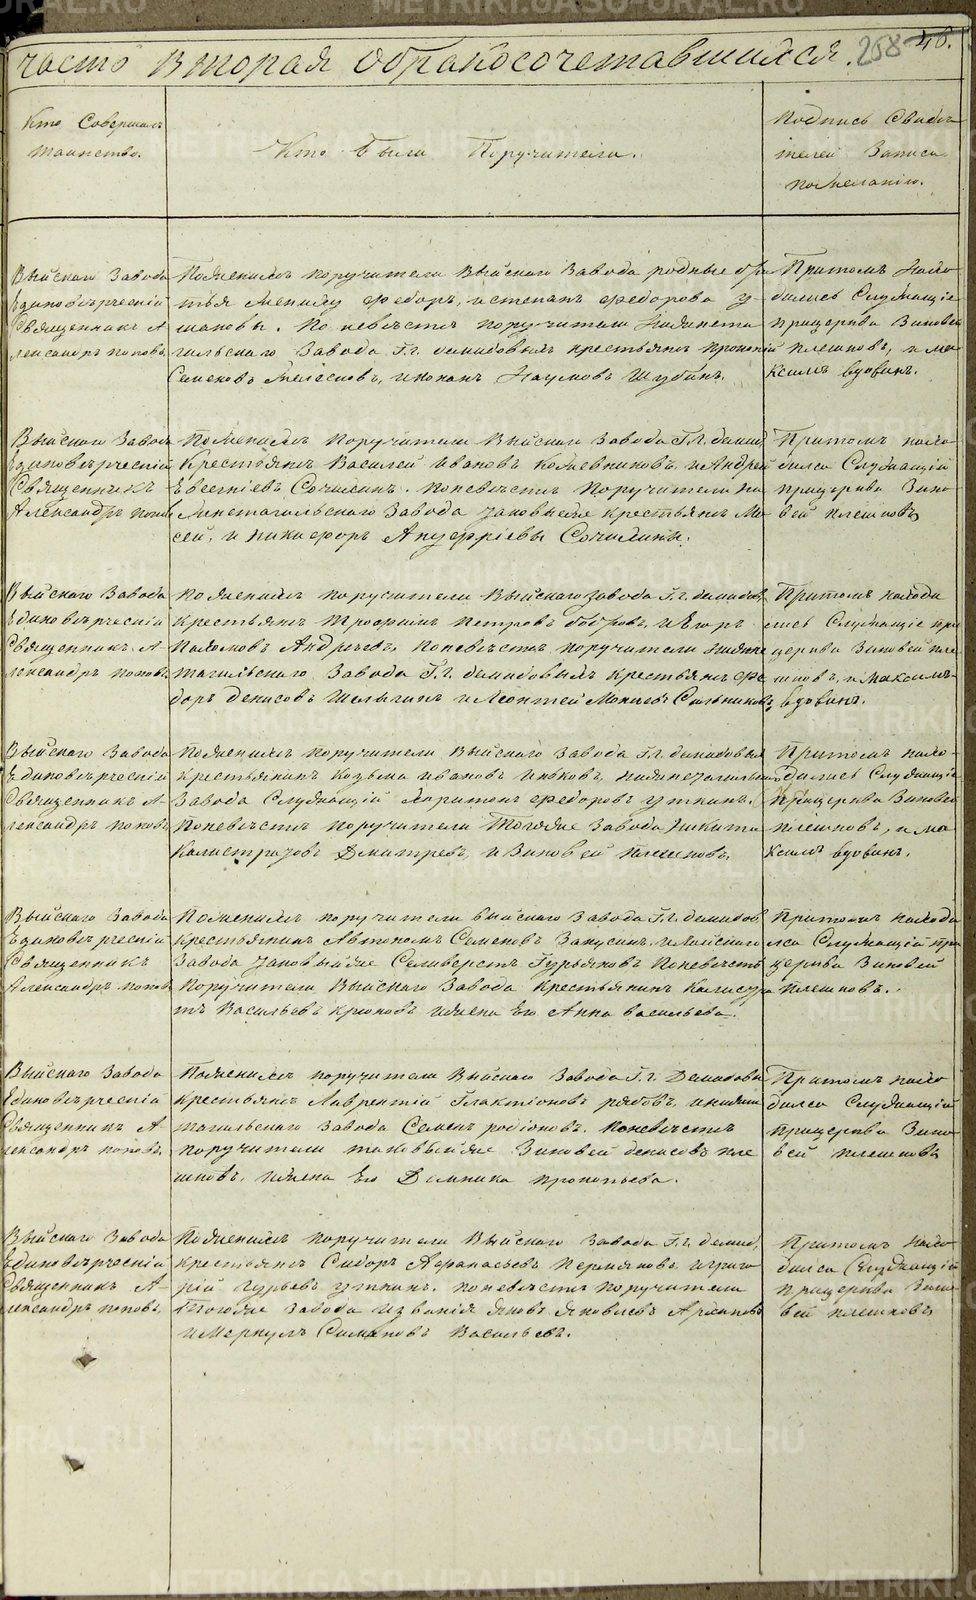 METRIKI.GASO-URAL.RU
часть вторая о бракосочетавшихся.
268 46.
Кто Совершалъ
таинство.
Кто были Поручители.
Подпись Свидѣ
телей Записи
по желанію.
Выйскаго Завода
Единовѣрческій
Священникъ А
лександръ поповъ
По женихѣ поручители Выйскаго Завода родные бра
тья жениху Федоръ, и степанъ Федоровы у
шаковы. По невѣстѣ поручители Нижнета
гильскаго Завода Г.г. демидовыхъ крестьяне прокопій
Семеновъ и Наумовъ Шубинъ.
Притомъ нахо
дились Служащіе
прицеркви Зиновей
плешковъ, и ма
ксимъ вдовинъ.
Выйскаго Завода
Единовѣрческій
Священникъ
Александръ поповъ
По женихѣ поручители Выйскаго Завода Г.г. демид
Крестьяне Василей Ивановъ Кожевниковъ, и Андрей
Евсегніевъ Сочилинъ. По невѣстѣ Поручители Ни
жнетагильскаго Завода таковыеже крестьяне Мо
сей, и никифоръ Ануфріевы Сочилины.
Притомъ нахо
дился Служащій
прицеркви Зино
вей плешковъ
Выйскаго Завода
Единовѣрческій
Священникъ А
лександръ поповъ
по женихѣ поручители Выйскаго завода Г.г. демидов
крестьяне Трофимъ петровъ бобровъ, и Егоръ
Пахомовъ Андреевъ. По невѣстѣ поручители нижне
тагильскаго Завода Г.г. демидовыхъ крестьяне Фе
доръ денисовъ и Леонтей
Притомъ находи
лись Служащіе при
церкви Зиновей пле
шковъ, и максимъ
вдовинъ.
Выйскаго Завода
Единовѣрческій
Священникъ А
лександръ поповъ
По женихѣ поручители Выйскаго Завода Г.г. демидовыхъ
крестьянинъ Козьма ивановъ нижнетагильскаго
Завода Служащій Харитонъ Федоровъ уткинъ.
По невѣстѣ поручители Тогоже Завода Никита
Калистратовъ Дмитревъ, и Зиновей плешковъ
Притомъ нахо
дились Служащіе
Прицеркви Зиновей
плешковъ, и ма
ксимъ вдовинъ.
Выйскаго Завода
Единовѣрческій
Священникъ
Александръ поповъ
По женихѣ поручители выйскаго завода Г.г. демидов
крестьянинъ Автономъ Семеновъ
Завода таковыйже Селиверстъ Гурьяновъ По невѣстѣ
Поручители Выйскаго Завода крестьянинъ Калистра
тъ Васильевъ крюковъ и жена Его Анна васильева.
Притомъ находи
лся Служащій при
церкви Зиновей
плешковъ.
Выйскаго Завода
Единовѣрческій
Священникъ А
лександръ поповъ
По женихѣ поручители Выйскаго Завода Г.г. Демидовы
крестьяне Лаврентій Галактіоновъ рябовъ, и нижне
тагильскаго завода Семенъ родіоновъ. По невѣстѣ
поручители таковыйже Зиновей денисовъ пле
шковъ, и жена Его Домника прокопьева.
Притомъ нахо
дился Служащій
прицеркви Зино
вей плешковъ
Выйскаго Завода
Единовѣрческій
Священникъ А
лександръ поповъ
По женихѣ поручители Выйскаго Завода Г.г. демид
крестьяне Сидоръ Афанасьевъ и григо
рій Гурьевъ уткинъ. по невѣстѣ поручители
Тогоже Завода яковъ яковлевъ
и меркулъ Симановъ Васильевъ.
Притомъ нахо
дился Служащій
прицеркви Зино
вей плешковъ
METRIKI.GASO-URAL.RU